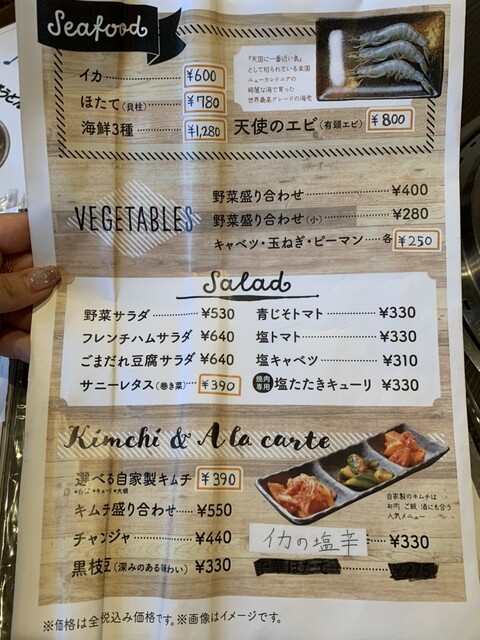 Seafood
イカ ¥600
ほたて(貝柱) ¥780
海鮮3種 ¥1,280
『天国に一番近い島』
として知られている楽園
ニューカレドニアの
綺麗な海で育った
世界最高グレードの海老
天使のエビ(有頭エビ) ¥800
VEGETABLES
野菜盛り合わせ ¥400
野菜盛り合わせ(小) ¥280
キャベツ・玉ねぎ・ピーマン 各 ¥250
Salad
野菜サラダ ¥530
フレンチハムサラダ ¥640
ごまだれ豆腐サラダ ¥640
サニーレタス(巻き菜) ¥390
青じそトマト ¥330
塩トマト ¥330
塩キャベツ ¥310
焼肉専用 塩たたきキューリ ¥330
Kimchi & A la carte
選べる自家製キムチ ¥390
キムチ盛り合わせ ¥550
チャンジャ ¥440
黒枝豆(深みのある味わい) ¥330
自家製のキムチは
お肉、ご飯、酒にも合う
人気メニュー
イカの塩辛 ¥330
※価格は全税込み価格です。※画像はイメージです。